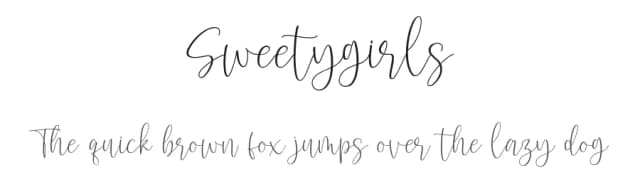 Sweetygirls
The quick brown fox jumps over the lazy dog